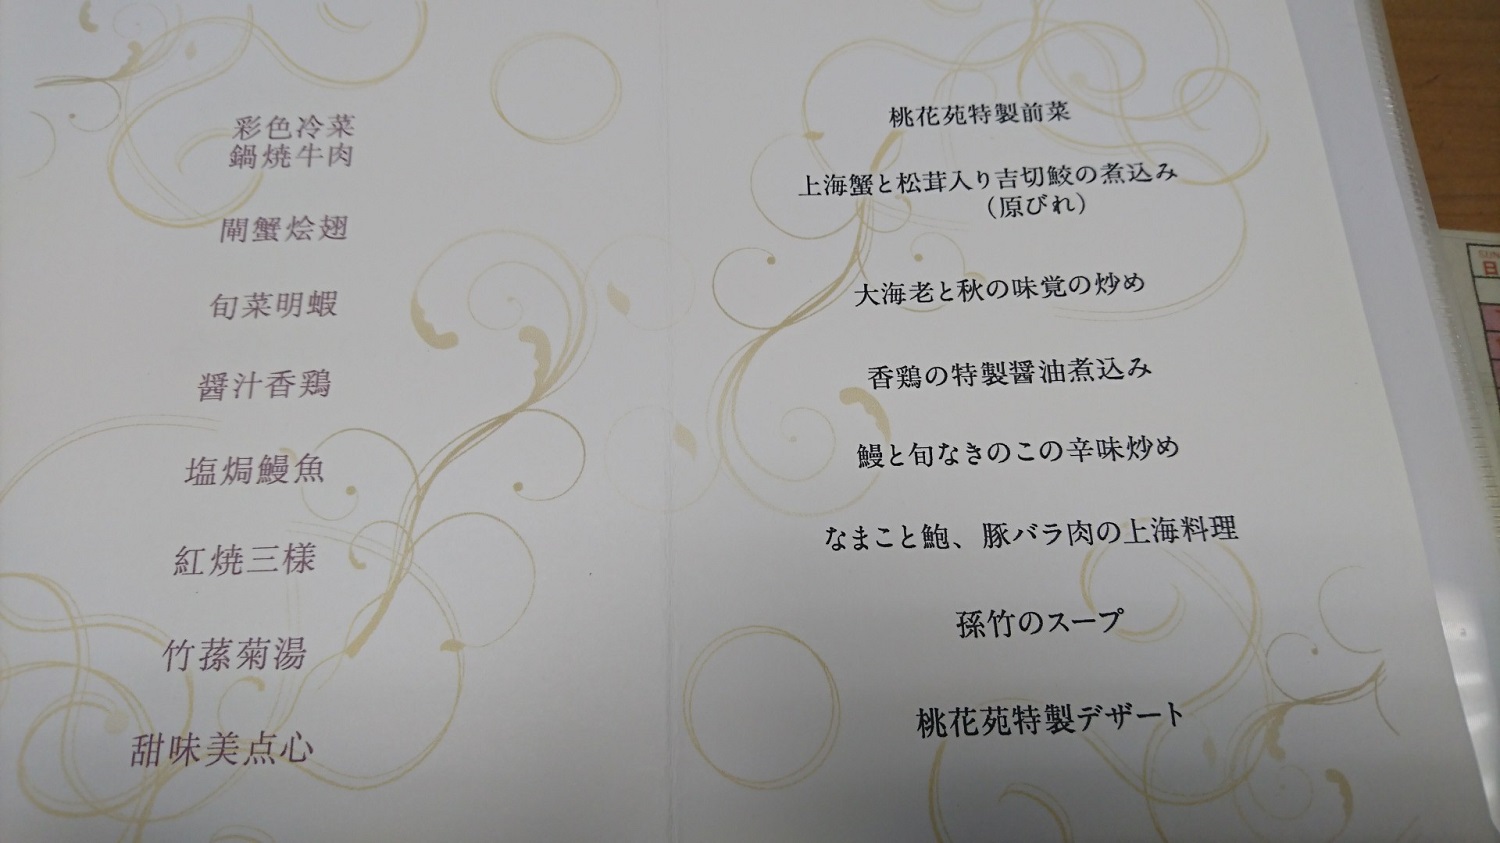 彩色冷菜
鍋焼牛肉
閘蟹烩翅
旬菜明蝦
醤汁香鶏
塩焗鰻魚
紅焼三様
竹蓀菊湯
甜味美点心
桃花苑特製前菜
上海蟹と松茸入り吉切鮫の煮込み
(原びれ)
大海老と秋の味覚の炒め
香鶏の特製醤油煮込み
鰻と旬なきのこの辛味炒め
なまこと鮑、豚バラ肉の上海料理
孫竹のスープ
桃花苑特製デザート
日